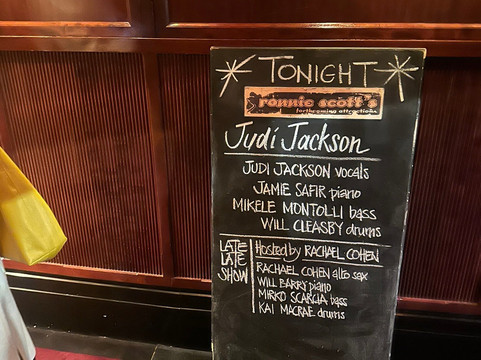 TONIGHT
ronnie scott's
forthcoming attractions
Judi Jackson
JUDI JACKSON vocals
JAMIE SAFIR piano
MIKELE MONTOLLI bass
WILL CLEASBY drums
LATE LATE SHOW
Hosted by RACHAEL COHEN
RACHAEL COHEN alto sax
WILL BARRY piano
MIRKO SCARCIA bass
KAI MACRAE drums